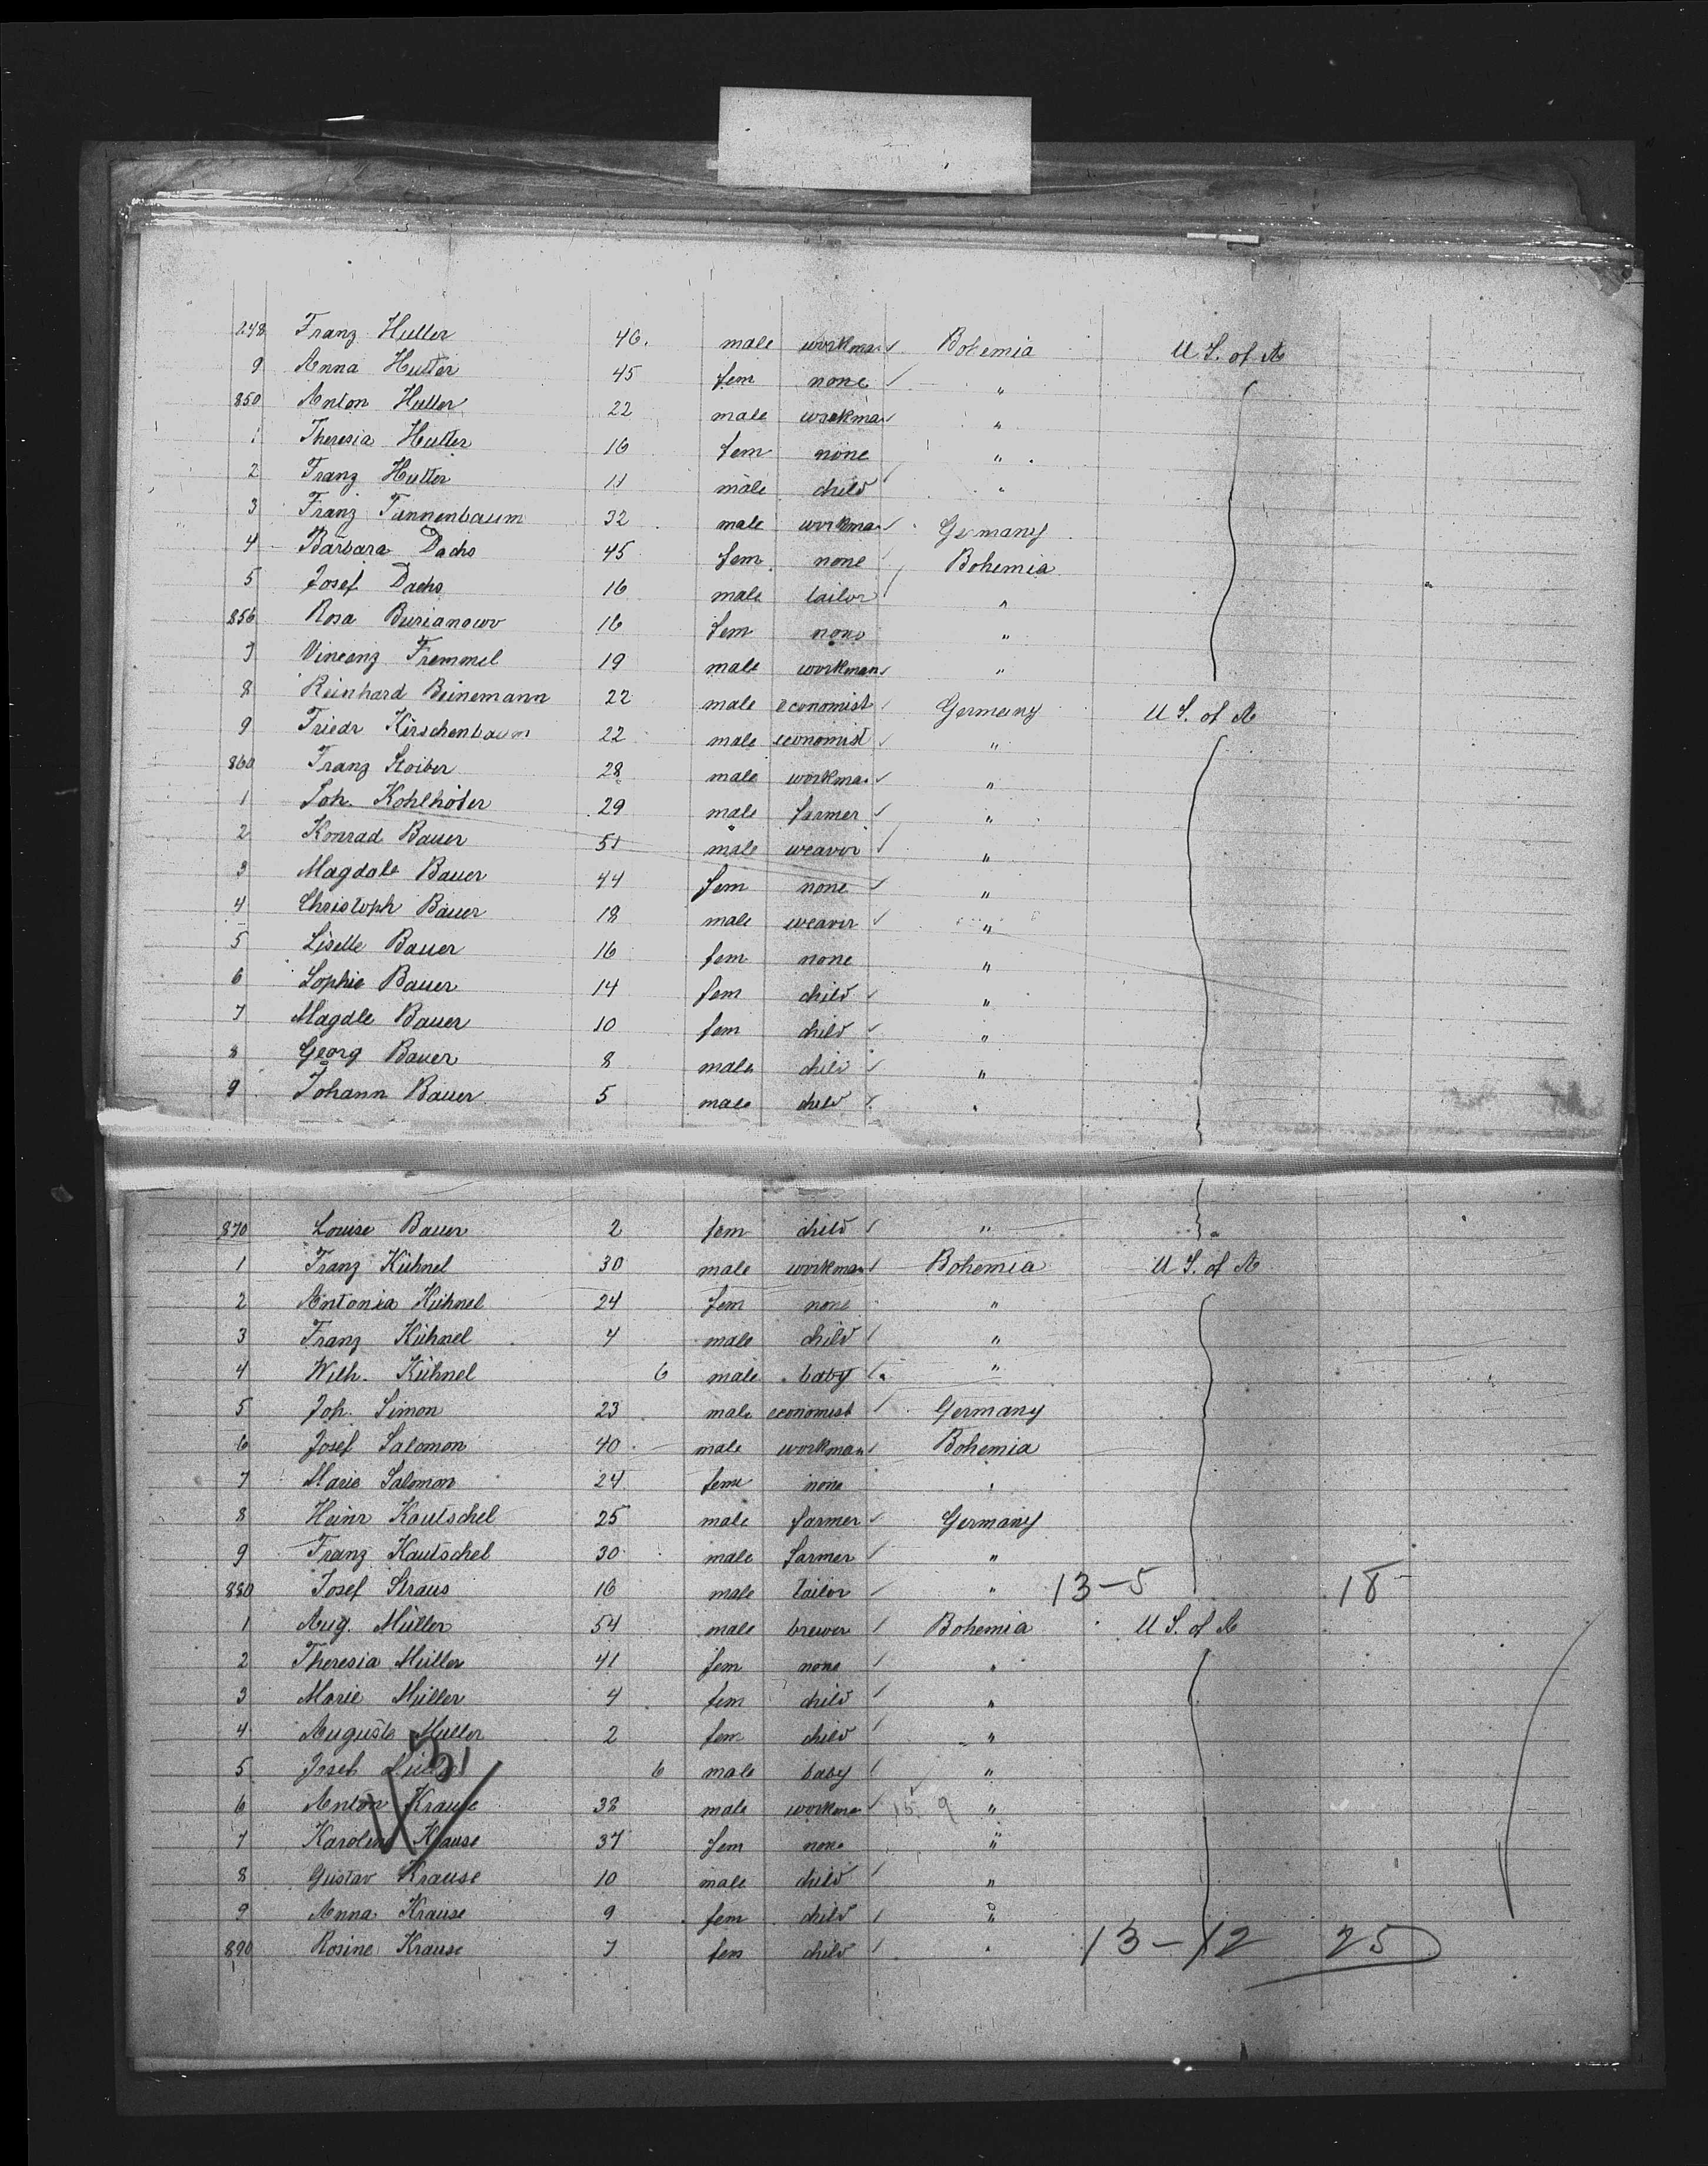 248 Franz Hutter 46. male workman Bohemia U S. of A
9 Anna Hutter 45 fem none "
850 Anton Hutter 22 male workman "
1 Theresia Hutter 16 fem none "
2 Franz Hutter 11 male child "
3 Franz Tannenbaum 32 male workman Germany
4 Barbara Dachs 45 fem none Bohemia
5 Josef Dachs 16 male tailor "
856 Rosa 16 fem none "
7 Vincenz Fremmel 19 male workman "
8 Reinhard Beinemann 22 male economist Germany U S. of A
9 Friedr Kirschenbaum 22 male economist "
860 Franz Stoiber 28 male workman "
1 Joh. Kohlhöfer 29 male farmer "
2 Konrad Bauer 51 male weaver "
3 Magdale Bauer 44 fem none "
4 Christoph Bauer 18 male weaver "
5 Liselle Bauer 16 fem none "
6 Sophie Bauer 14 fem child "
7 Magdle Bauer 10 fem child "
8 Georg Bauer 8 male child "
9 Johann Bauer 5 male child "
870 Louise Bauer 2 fem child "
1 Franz Kühnel 30 male workman Bohemia U S. of A
2 Antonia Kühnel 24 fem none "
3 Franz Kühnel 4 male child "
4 Wilh. Kühnel 6 male baby "
5 Joh. Simon 23 male economist Germany
6 Josef Salomon 40 male workman Bohemia
7 Marie Salomon 24 fem none "
8 Heinr Kautschel 25 male farmer Germany
9 Franz Kautschel 30 male farmer "
880 Josef Straus 16 male tailor " 13-5 18
1 Aug. Müller 54 male brewer Bohemia U S. of A
2 Theresia Müller 41 fem none "
3 Marie Müller 4 fem child "
4 Auguste Müller 2 fem child "
5 Josef 6 male baby "
6 Anton Krause 38 male workman 15 9 "
7 Karoline Krause 37 fem none "
8 Gustav Krause 10 male child "
9 Anna Krause 9 fem child "
890 Rosine Krause 7 fem child " 13-12 25